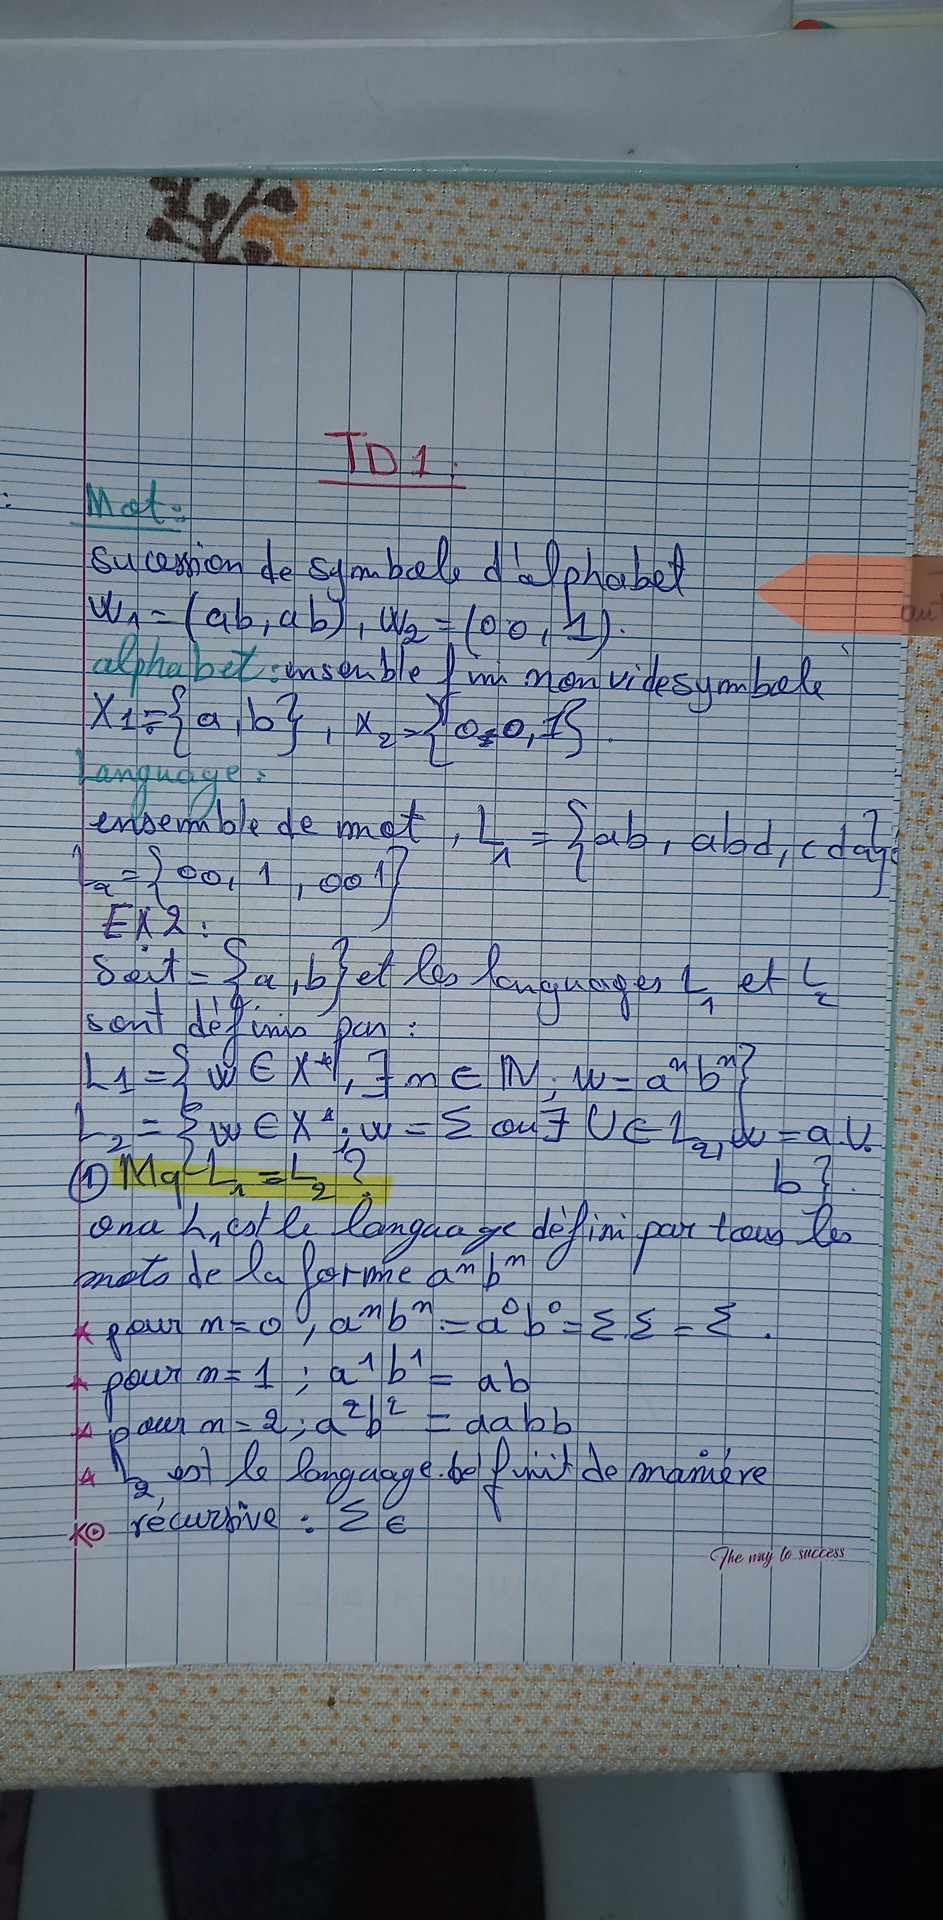 TD1:
Mot:
sucession de symbole d'alphabet
W1 = (ab, ab), W2 = (00, 1).
alphabet: ensenble fini non vide symbole
X1 = {a, b}, X2 = {0.0, 1}.
Language:
ensemble de mot, L1 = {ab, abd, cda}
L2 = {00, 1, 001}
EX2:
Soit = {a, b} et les languages L1 et L2
sont définis par:
L1 = {w ∈ X*, ∃ n ∈ ℕ; w = aⁿbⁿ}
L2 = {w ∈ X*; w = Σ ou ∃ U ∈ L2, w = a.U.
b}.
① Mq L1 = L2 ?
ona L1 est le language défini par tous les
mots de la forme aⁿbⁿ
* pour n = 0, aⁿbⁿ = a⁰b⁰ = Σ.Σ = Σ.
* pour n = 1; a¹b¹ = ab
* pour n = 2; a²b² = aabb
* L2 est le language définit de manière
récursive: Σ ∈
The way to success